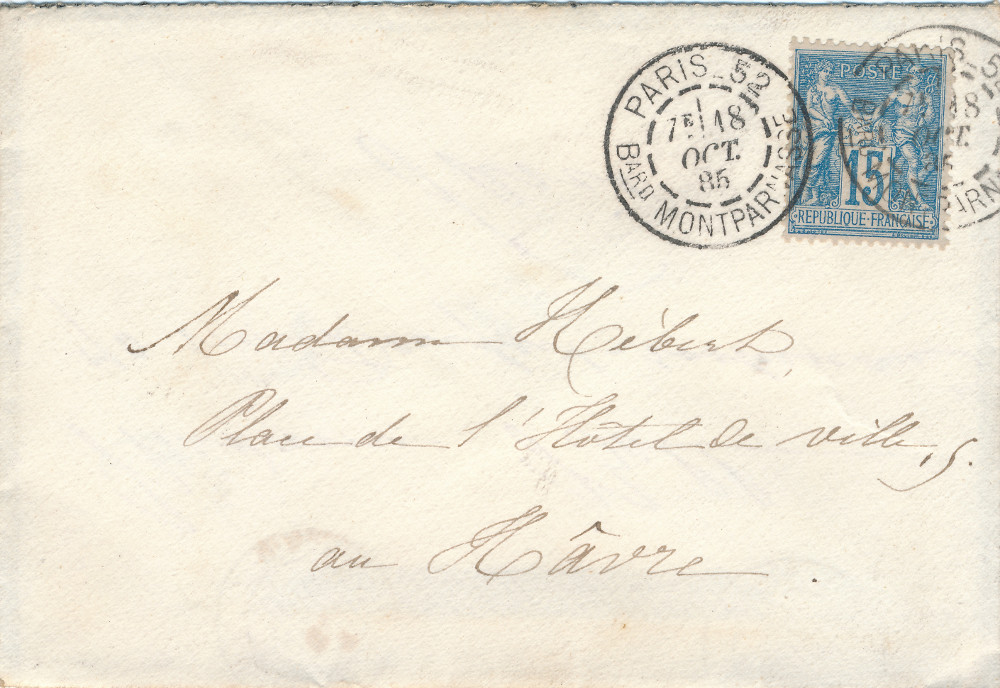 PARIS_52
7E 18
OCT.
85
BARD MONTPARNASSE
POSTE
15
REPUBLIQUE FRANÇAISE
Madame Hébert,
Place de l'Hôtel de ville, 5.
au Hâvre.